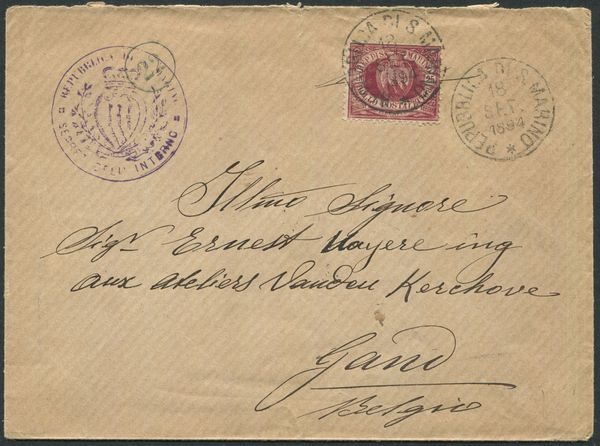 REPUBBLICA DI S. MARINO
SEGRETERIA INTERNO
REPUBBLICA DI S. MARINO
18
SET.
1894
Illmo Signore
Sigr Ernest Mayere ing
aux ateliers Vanden Kerchove
Gand
Belgio